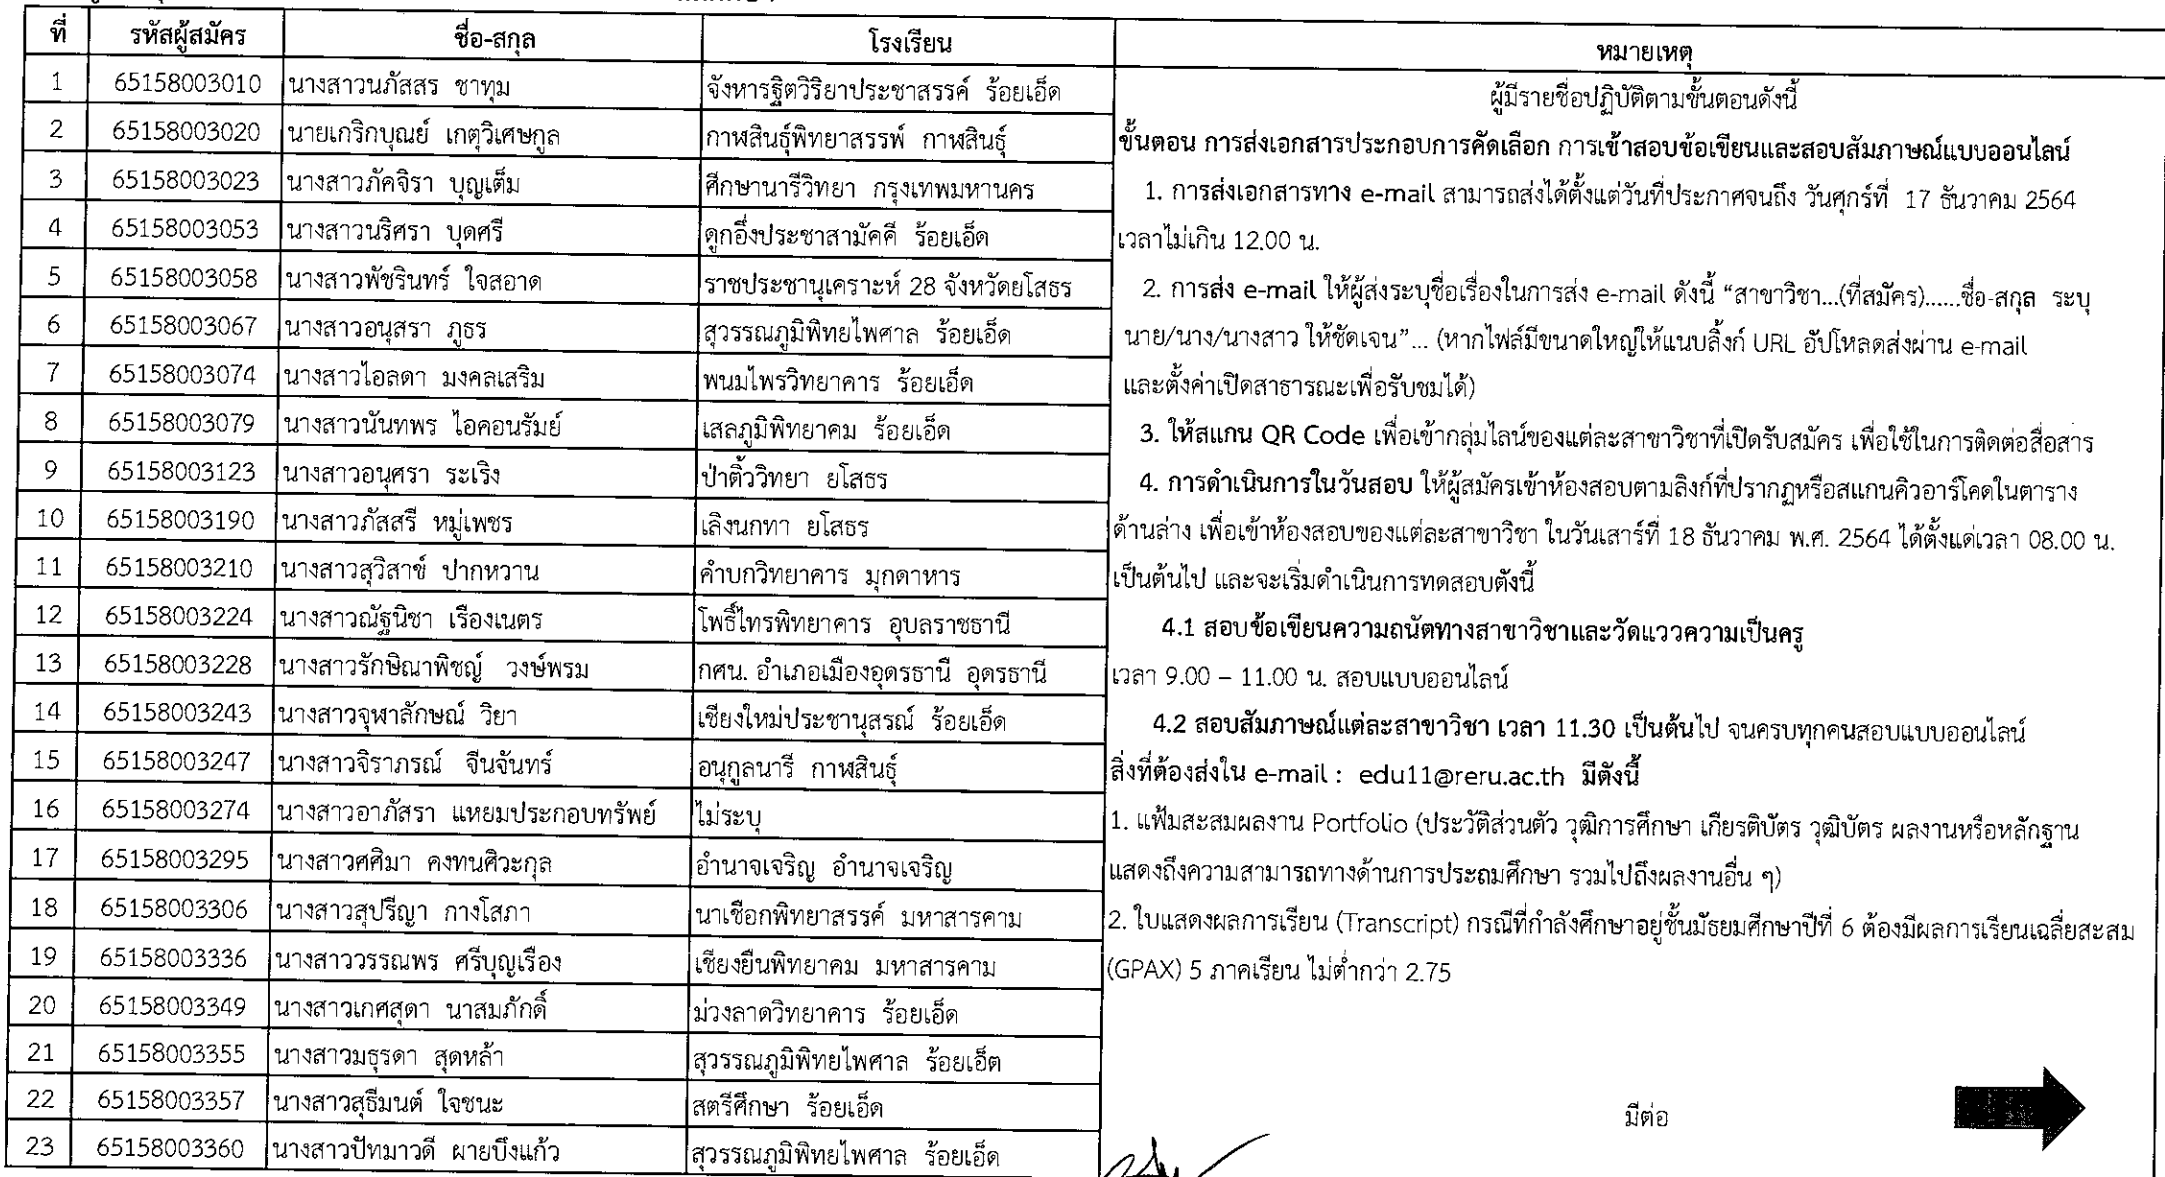 ที่ รหัสผู้สมัคร ชื่อ-สกุล โรงเรียน หมายเหตุ
1 65158003010 นางสาวนภัสสร ชาทุม จังหารฐิตวิริยาประชาสรรค์ ร้อยเอ็ด
2 65158003020 นายเกริกบุณย์ เกตุวิเศษกูล กาฬสินธุ์พิทยาสรรพ์ กาฬสินธุ์
3 65158003023 นางสาวภัคจิรา บุญเต็ม ศึกษานารีวิทยา กรุงเทพมหานคร
4 65158003053 นางสาวนริศรา บุดศรี ดูกอึ่งประชาสามัคคี ร้อยเอ็ด
5 65158003058 นางสาวพัชรินทร์ ใจสอาด ราชประชานุเคราะห์ 28 จังหวัดยโสธร
6 65158003067 นางสาวอนุสรา ภูธร สุวรรณภูมิพิทยไพศาล ร้อยเอ็ด
7 65158003074 นางสาวไอลดา มงคลเสริม พนมไพรวิทยาคาร ร้อยเอ็ด
8 65158003079 นางสาวนันทพร ไอคอนรัมย์ เสลภูมิพิทยาคม ร้อยเอ็ด
9 65158003123 นางสาวอนุศรา ระเริง ป่าติ้ววิทยา ยโสธร
10 65158003190 นางสาวภัสสรี หมู่เพชร เลิงนกทา ยโสธร
11 65158003210 นางสาวสุวิสาข์ ปากหวาน คำบกวิทยาคาร มุกดาหาร
12 65158003224 นางสาวณัฐนิชา เรืองเนตร โพธิ์ไทรพิทยาคาร อุบลราชธานี
13 65158003228 นางสาวรักษิณาพิชญ์ วงษ์พรม กศน. อำเภอเมืองอุดรธานี อุดรธานี
14 65158003243 นางสาวจุฬาลักษณ์ วิยา เชียงใหม่ประชานุสรณ์ ร้อยเอ็ด
15 65158003247 นางสาวจิราภรณ์ จีนจันทร์ อนุกูลนารี กาฬสินธุ์
16 65158003274 นางสาวอาภัสรา แหยมประกอบทรัพย์ ไม่ระบุ
17 65158003295 นางสาวศศิมา คงทนศิวะกุล อำนาจเจริญ อำนาจเจริญ
18 65158003306 นางสาวสุปรีญา กางโสภา นาเชือกพิทยาสรรค์ มหาสารคาม
19 65158003336 นางสาววรรณพร ศรีบุญเรือง เชียงยืนพิทยาคม มหาสารคาม
20 65158003349 นางสาวเกศสุดา นาสมภักดิ์ ม่วงลาดวิทยาคาร ร้อยเอ็ด
21 65158003355 นางสาวมธุรดา สุดหล้า สุวรรณภูมิพิทยไพศาล ร้อยเอ็ด
22 65158003357 นางสาวสุธีมนต์ ใจชนะ สตรีศึกษา ร้อยเอ็ด
23 65158003360 นางสาวปัทมาวดี ผายบึงแก้ว สุวรรณภูมิพิทยไพศาล ร้อยเอ็ด
ผู้มีรายชื่อปฏิบัติตามขั้นตอนดังนี้
ขั้นตอน การส่งเอกสารประกอบการคัดเลือก การเข้าสอบข้อเขียนและสอบสัมภาษณ์แบบออนไลน์
1. การส่งเอกสารทาง e-mail สามารถส่งได้ตั้งแต่วันที่ประกาศจนถึง วันศุกร์ที่ 17 ธันวาคม 2564
เวลาไม่เกิน 12.00 น.
2. การส่ง e-mail ให้ผู้ส่งระบุชื่อเรื่องในการส่ง e-mail ดังนี้ “สาขาวิชา...(ที่สมัคร)......ชื่อ-สกุล ระบุ
นาย/นาง/นางสาว ให้ชัดเจน”... (หากไฟล์มีขนาดใหญ่ให้แนบลิ้งก์ URL อัปโหลดส่งผ่าน e-mail
และตั้งค่าเปิดสาธารณะเพื่อรับชมได้)
3. ให้สแกน QR Code เพื่อเข้ากลุ่มไลน์ของแต่ละสาขาวิชาที่เปิดรับสมัคร เพื่อใช้ในการติดต่อสื่อสาร
4. การดำเนินการในวันสอบ ให้ผู้สมัครเข้าห้องสอบตามลิงก์ที่ปรากฏหรือสแกนคิวอาร์โคดในตาราง
ด้านล่าง เพื่อเข้าห้องสอบของแต่ละสาขาวิชา ในวันเสาร์ที่ 18 ธันวาคม พ.ศ. 2564 ได้ตั้งแต่เวลา 08.00 น.
เป็นต้นไป และจะเริ่มดำเนินการทดสอบดังนี้
4.1 สอบข้อเขียนความถนัดทางสาขาวิชาและวัดแววความเป็นครู
เวลา 9.00 – 11.00 น. สอบแบบออนไลน์
4.2 สอบสัมภาษณ์แต่ละสาขาวิชา เวลา 11.30 เป็นต้นไป จนครบทุกคนสอบแบบออนไลน์
สิ่งที่ต้องส่งใน e-mail : edu11@reru.ac.th มีดังนี้
1. แฟ้มสะสมผลงาน Portfolio (ประวัติส่วนตัว วุฒิการศึกษา เกียรติบัตร วุฒิบัตร ผลงานหรือหลักฐาน
แสดงถึงความสามารถทางด้านการประถมศึกษา รวมไปถึงผลงานอื่น ๆ)
2. ใบแสดงผลการเรียน (Transcript) กรณีที่กำลังศึกษาอยู่ชั้นมัธยมศึกษาปีที่ 6 ต้องมีผลการเรียนเฉลี่ยสะสม
(GPAX) 5 ภาคเรียน ไม่ต่ำกว่า 2.75
มีต่อ